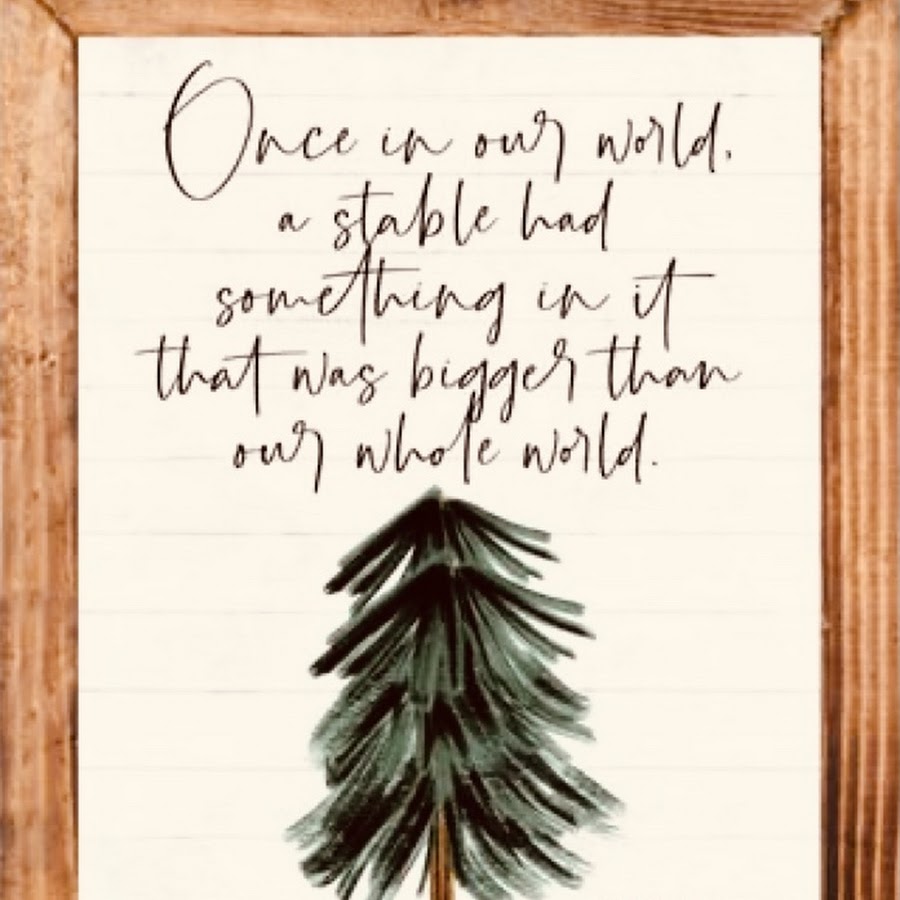 Once in our world,
a stable had
something in it
that was bigger than
our whole world.